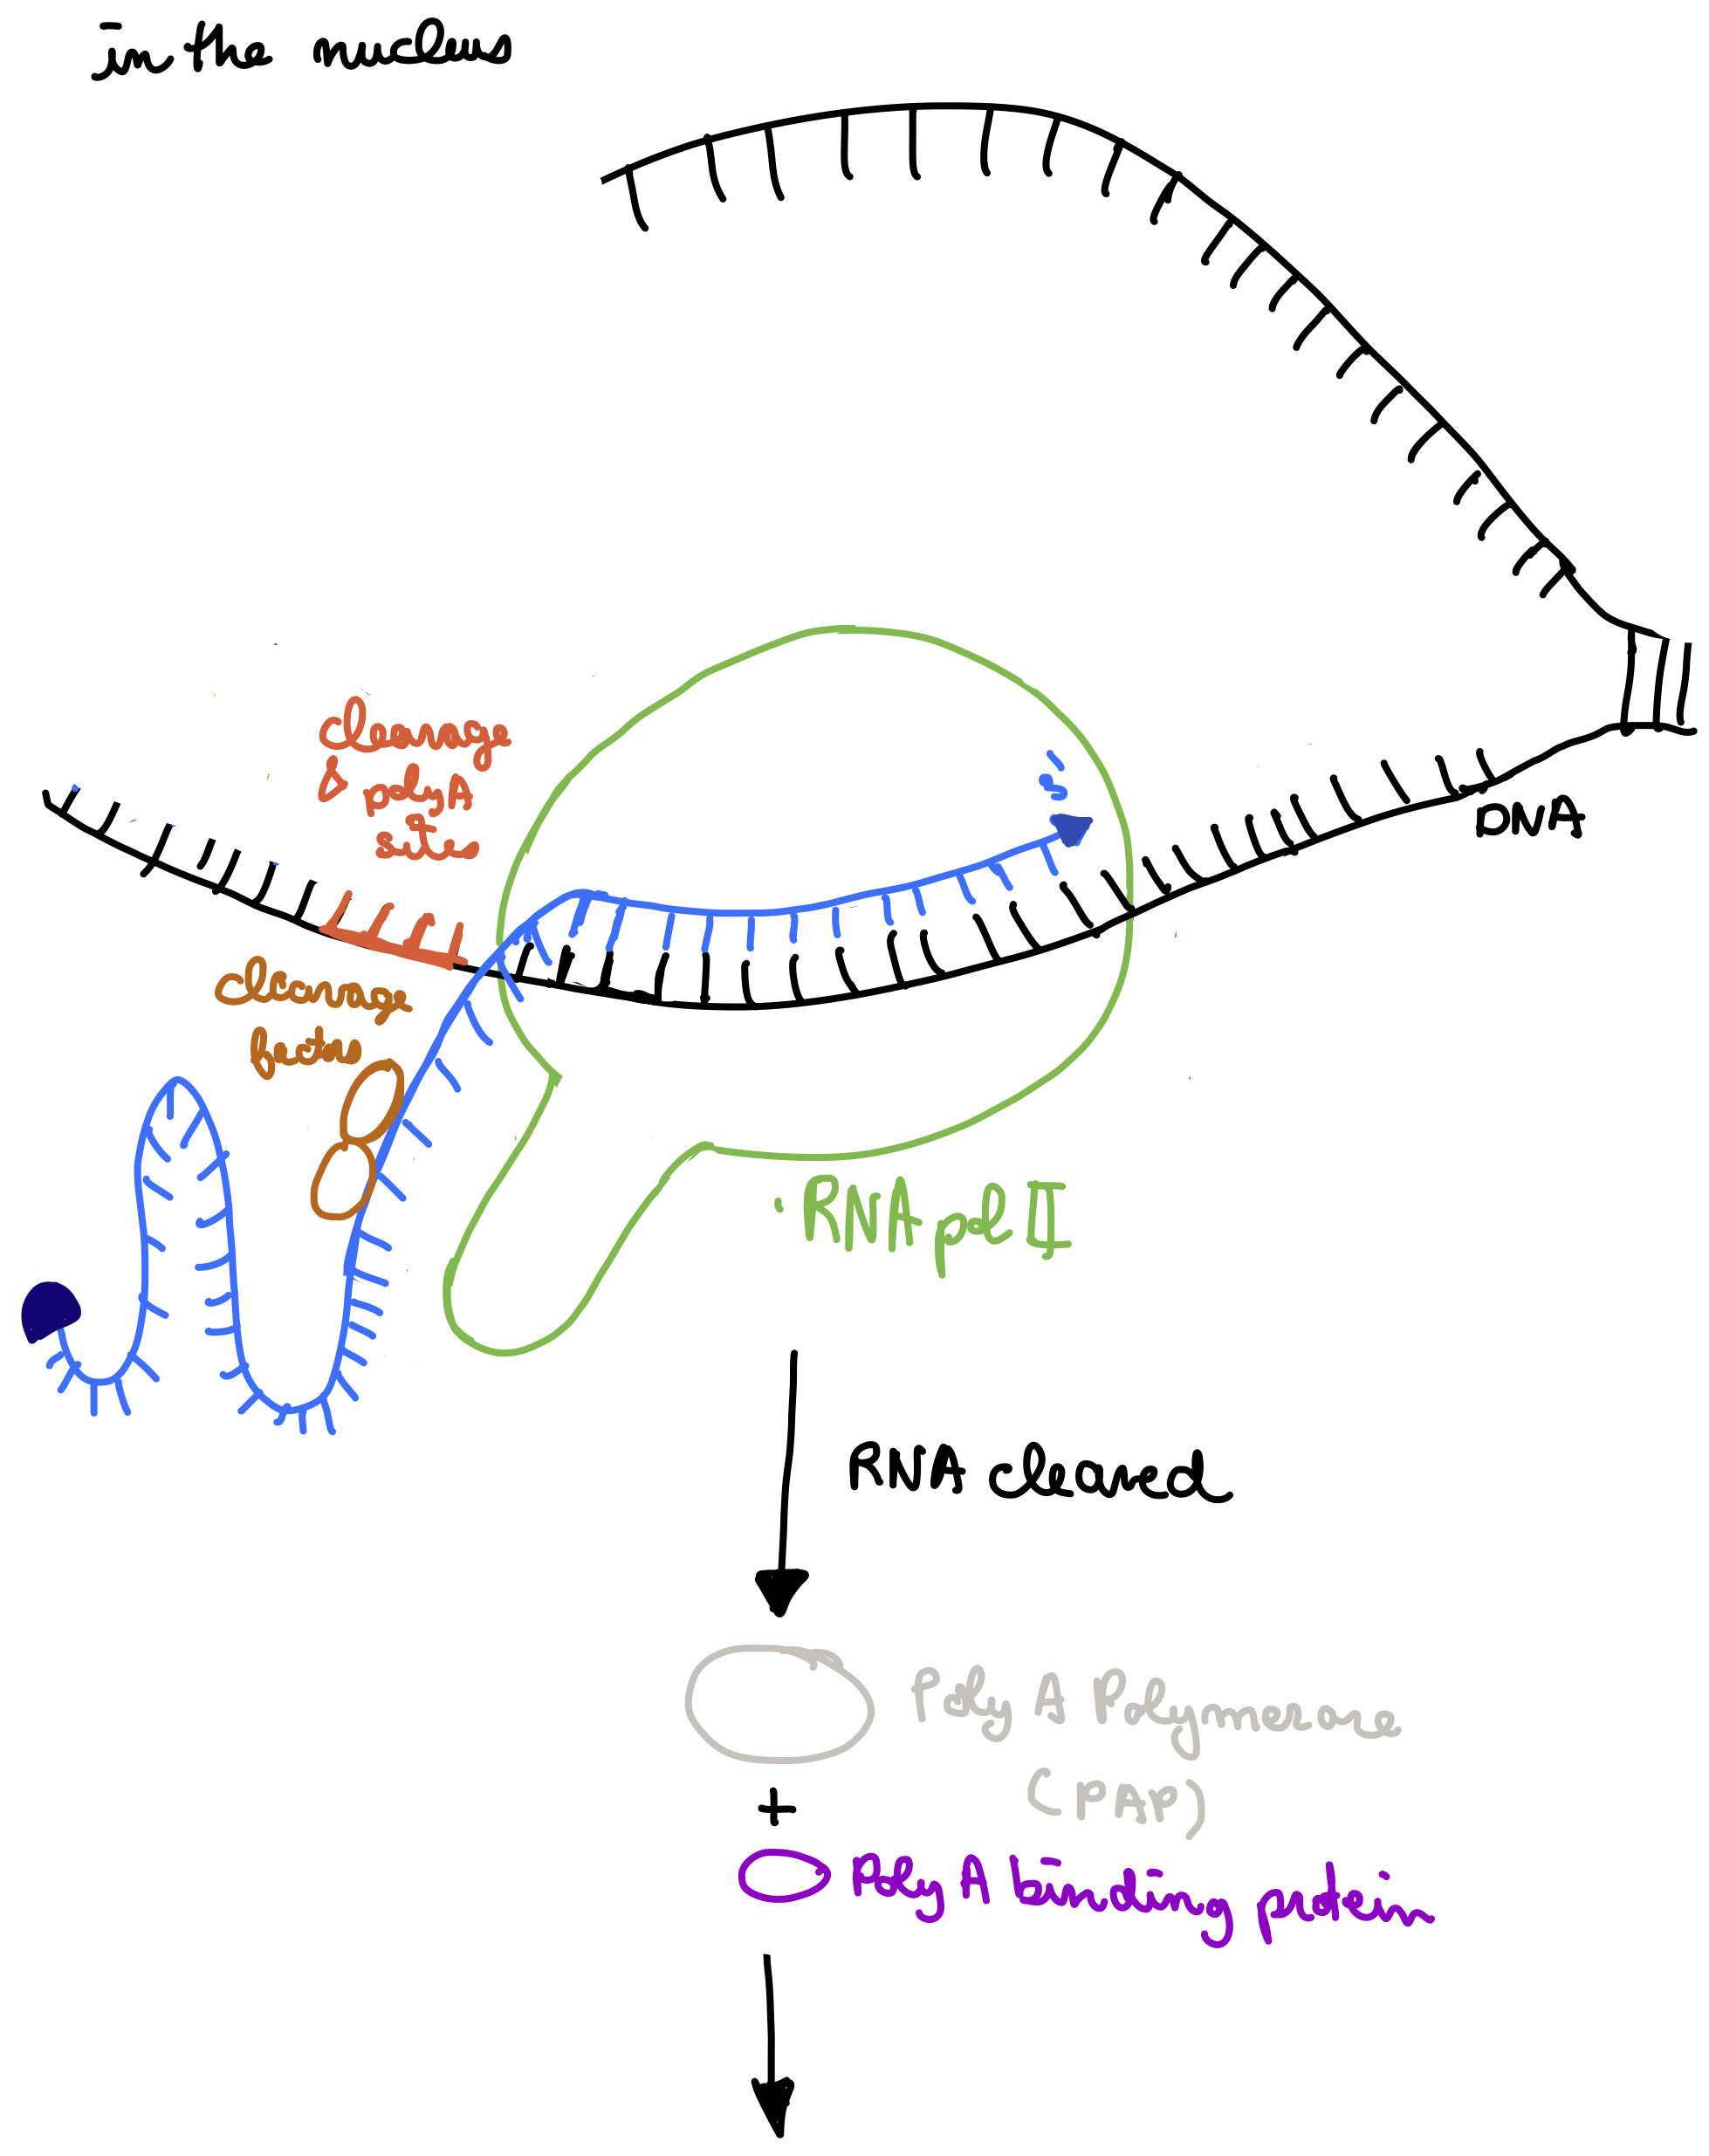 in the nucleus
3'
DNA
cleavage
& polyA
site
cleavage
factor
RNA pol II
RNA cleaved
Poly A Polymerase
(PAP)
+
Poly A binding protein